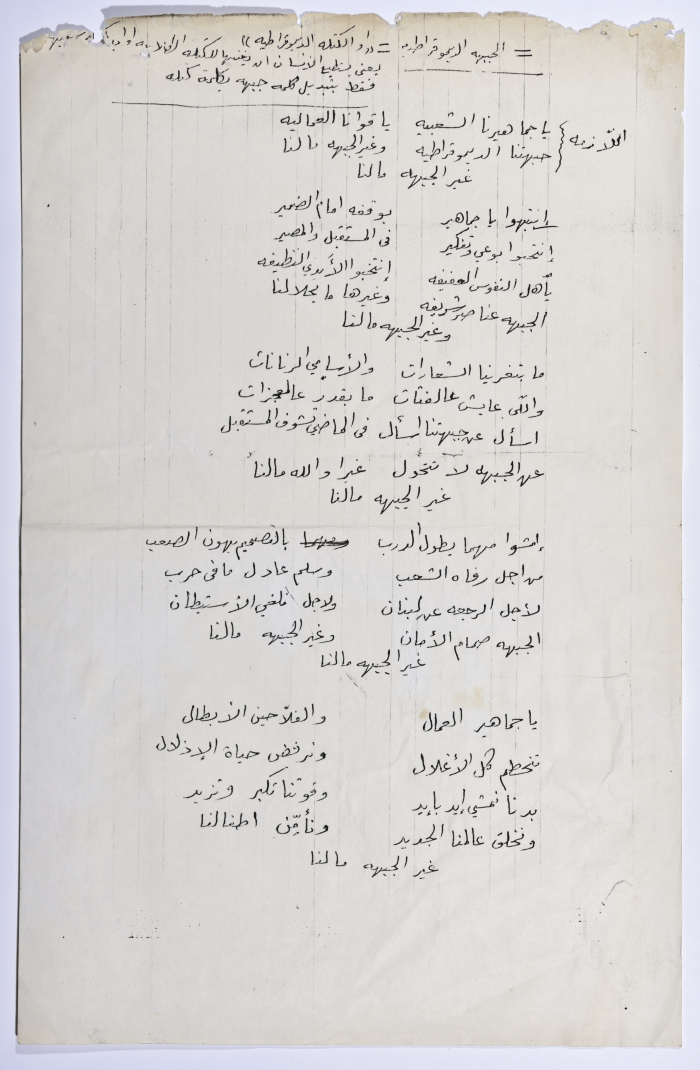 = الجبهه الديموقراطيه = "او الكتله الديموقراطيه"
يعني يستطيع الانسان ان يغنيها للكتله
فقط بتبديل كلمه جبهه بكلمة كتله
اللازمه { يا جماهيرنا الشعبيه يا قوانا العماليه
جبهتنا الديموقراطيه وغير الجبهه مالنا
غير الجبهه مالنا
إنتبهوا يا جماهير بوقفه امام الضمير
إنتخبوا بوعي وتفكير في المستقبل والمصير
يأهل النفوس العفيفه إنتخبوا الأيدي النظيفه
الجبهه عناصر شريفه وغيرها ما يحلالنا
وغير الجبهه مالنا
ما بتغرينا الشعارات والأسامي الرنانات
واللي عايش عالفتات ما بقدر عالمعجزات
اسأل عن جبهتنا اسأل في الماضي تشوف المستقبل
عن الجبهه لا تتحول غيرا والله مالنا
غير الجبهه مالنا
إمشوا مهما يطول الدرب بالتصميم بهون الصعب
من اجل رفاه الشعب وسلم عادل ما في حرب
لأجل الرجعه عن لبنان ولاجل نلغي الأستيطان
الجبهه صمام الأمان وغير الجبهه مالنا
غير الجبهه مالنا
يا جماهير العمال والفلاحين الأبطال
تنحطم كل الأغلال ونرفض حياة الإذلال
بدنا نمشي إيد بإيد وقوتنا تكبر وتزيد
ونخلق عالمنا الجديد ونأمّن اطفالنا
غير الجبهه مالنا